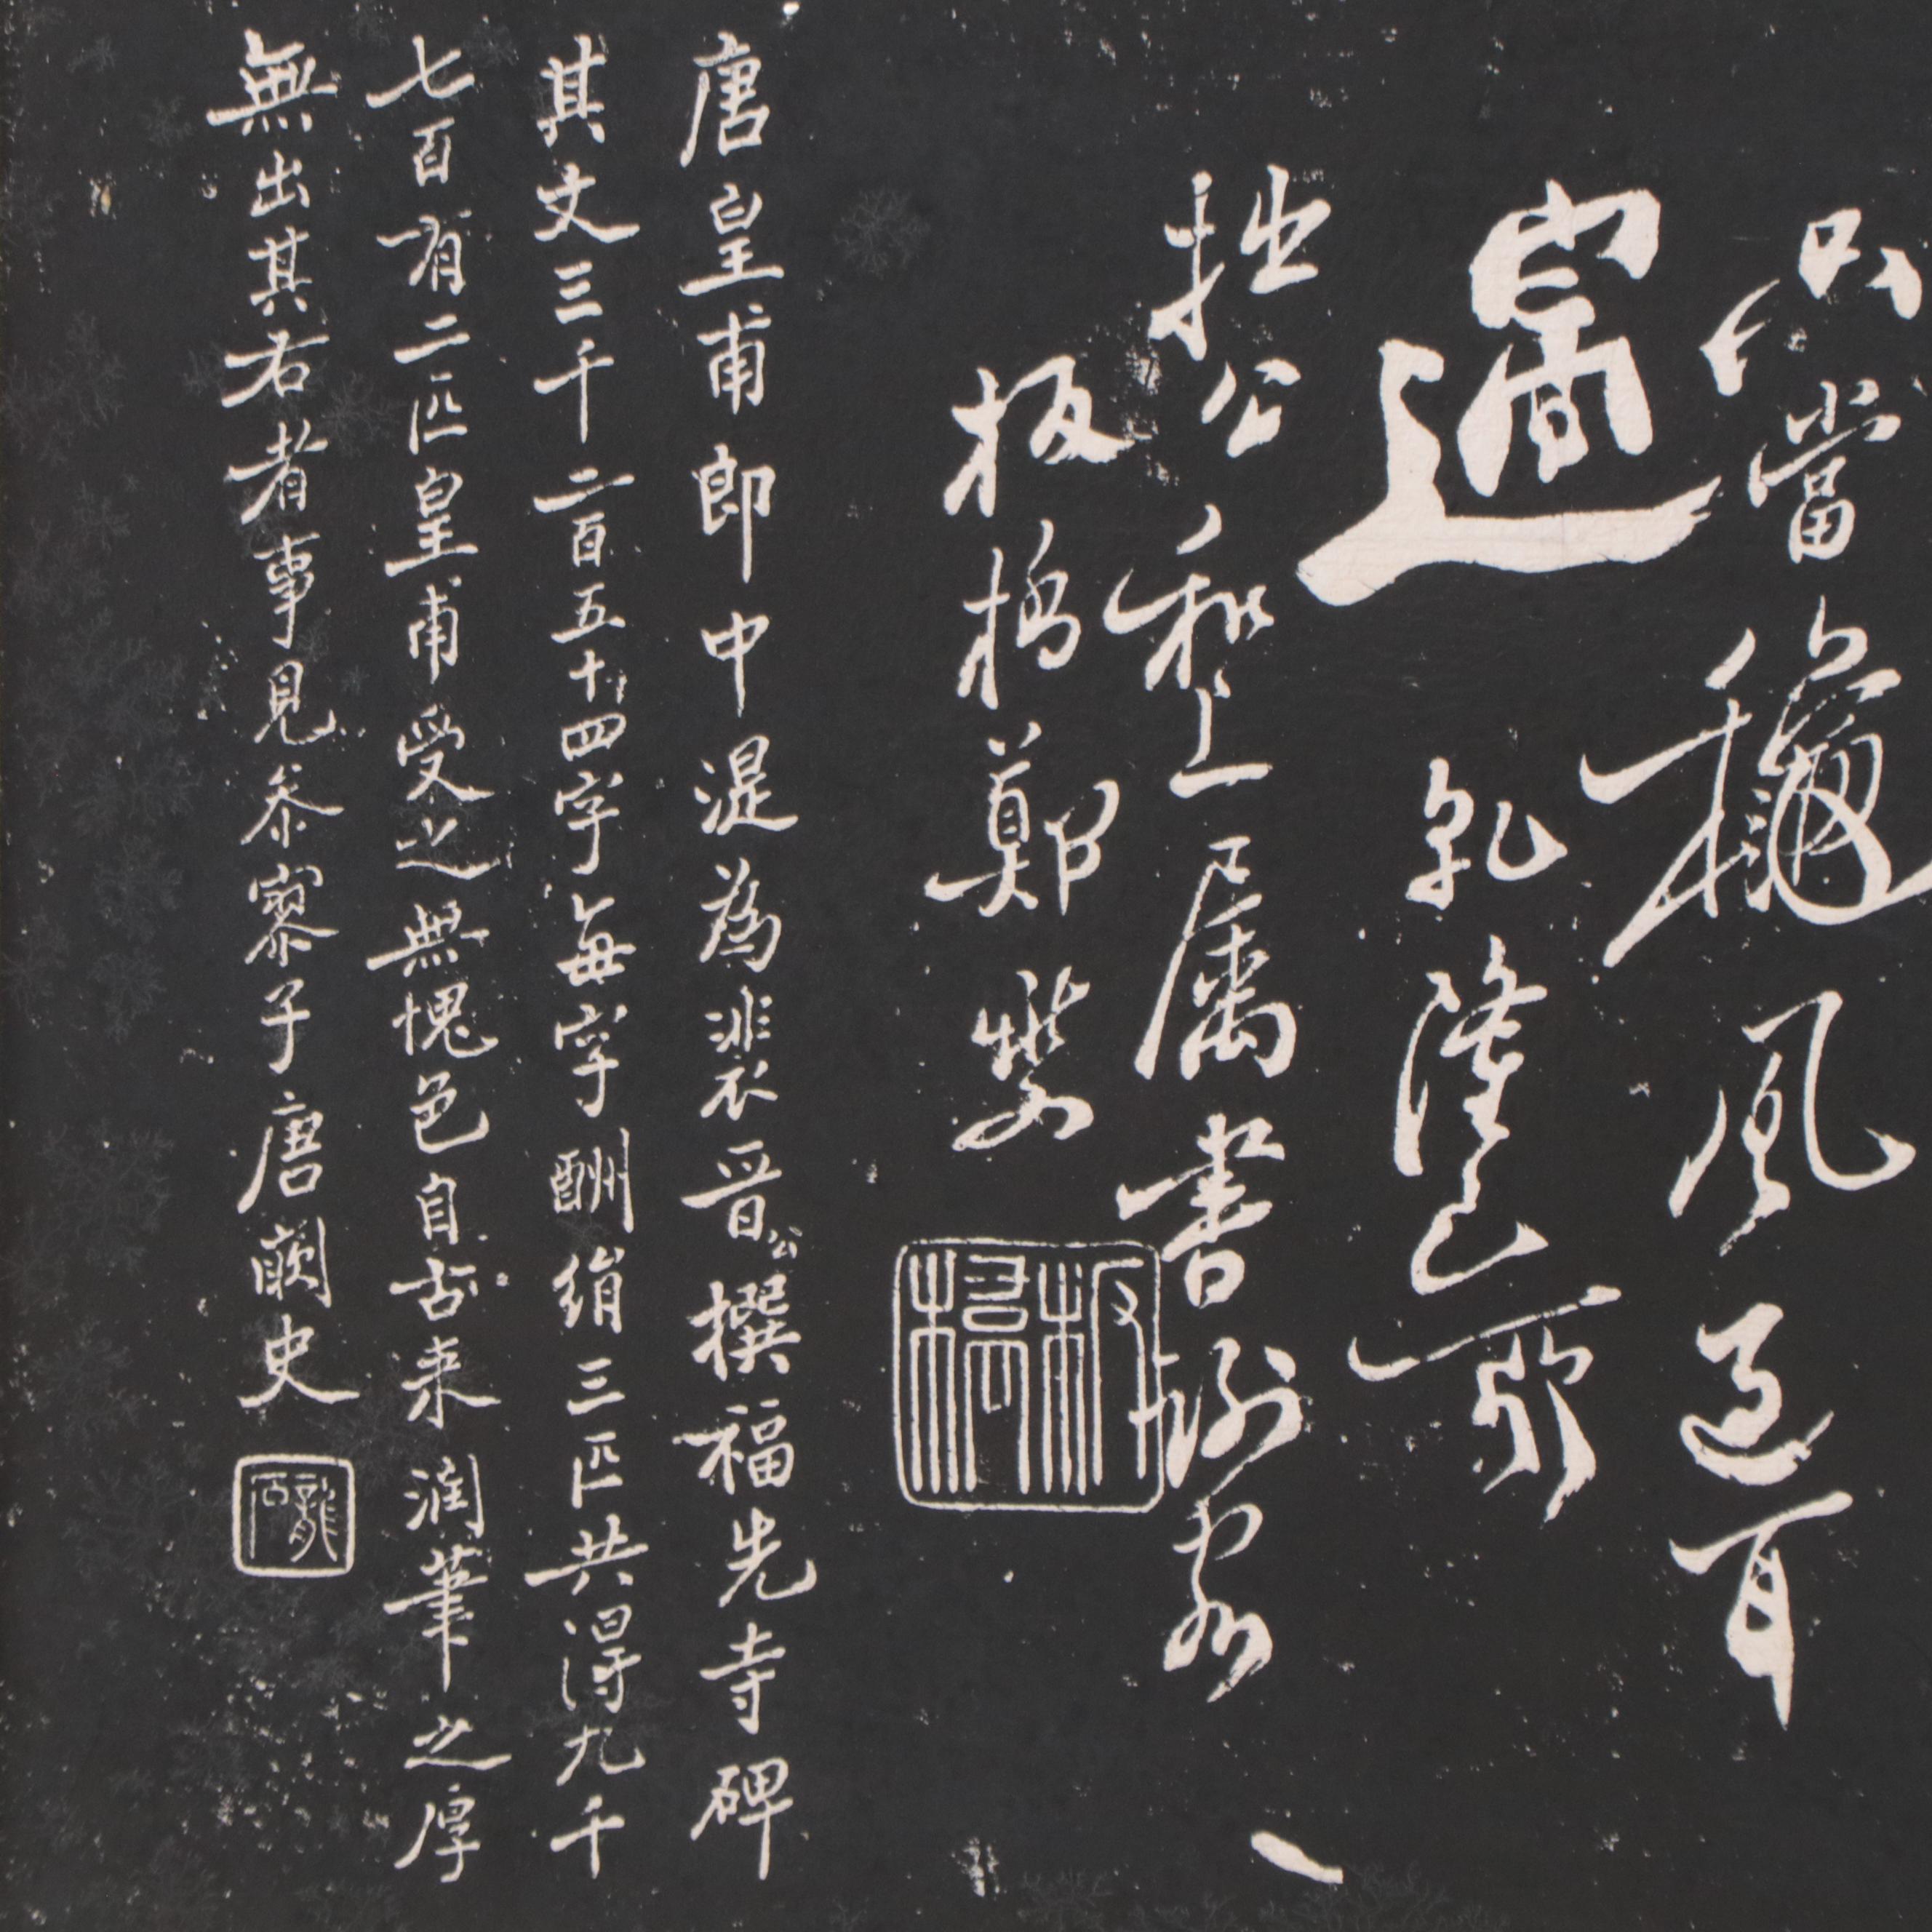 只當龝風過耳
邊 乾隆己卯
拙公和上屬書謝客
板橋鄭燮
板橋
唐皇甫郎中湜為裴晉公撰福先寺碑
其文三千二百五十四字每字酬絹三匹共得九千
七百有二匹皇甫受之無愧色自古来潤筆之厚
無出其右者事見參寥子唐闕史
龍石